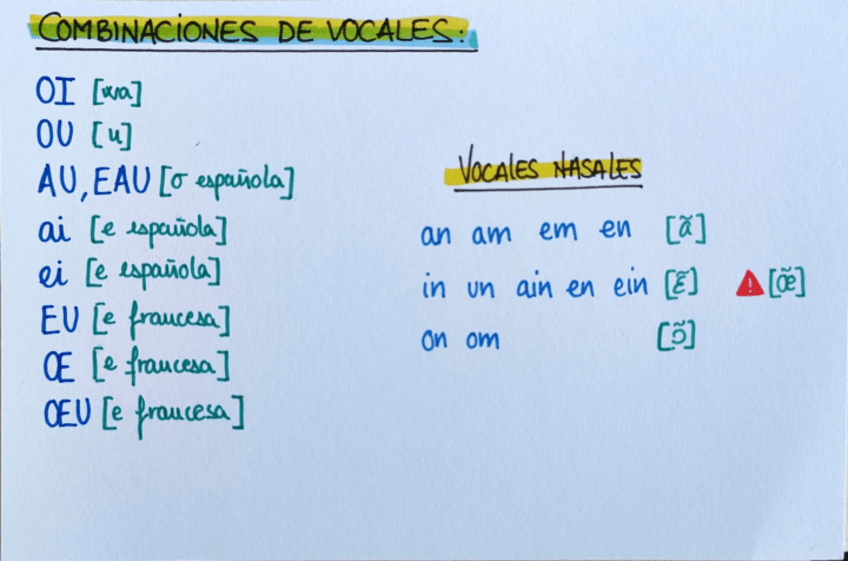 COMBINACIONES DE VOCALES:
OI [wa]
OU [u]
AU, EAU [o española]
ai [e española]
ei [e española]
EU [e francesa]
Œ [e francesa]
ŒU [e francesa]
VOCALES NASALES
an am em en [ã]
in un ain en ein [ɛ̃] [œ̃]
on om [ɔ̃]